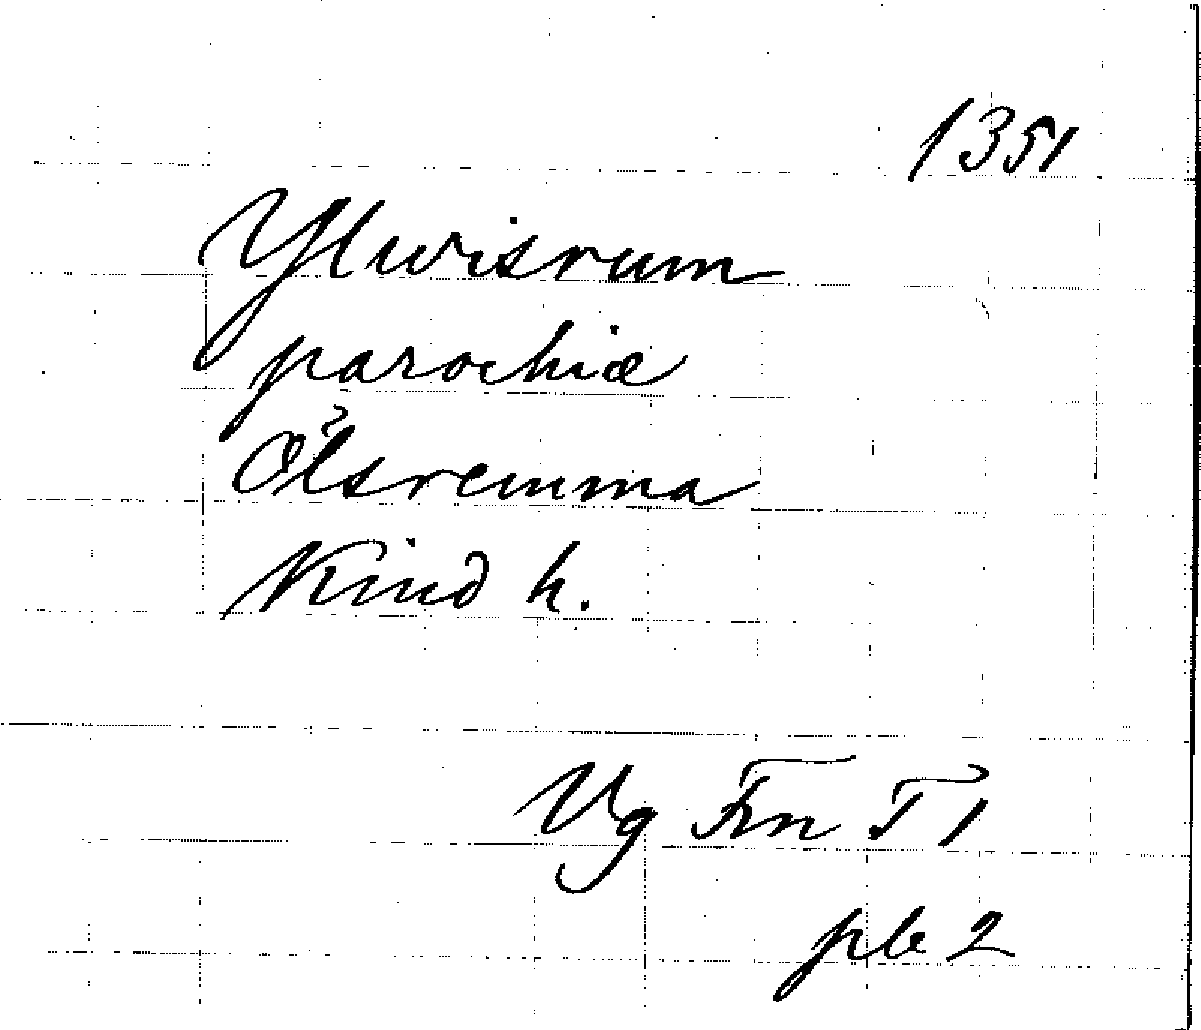 1351
Ylwisrum
parochiæ
Ölsremma
Kind h.
Vg Frn T 1
pb 2